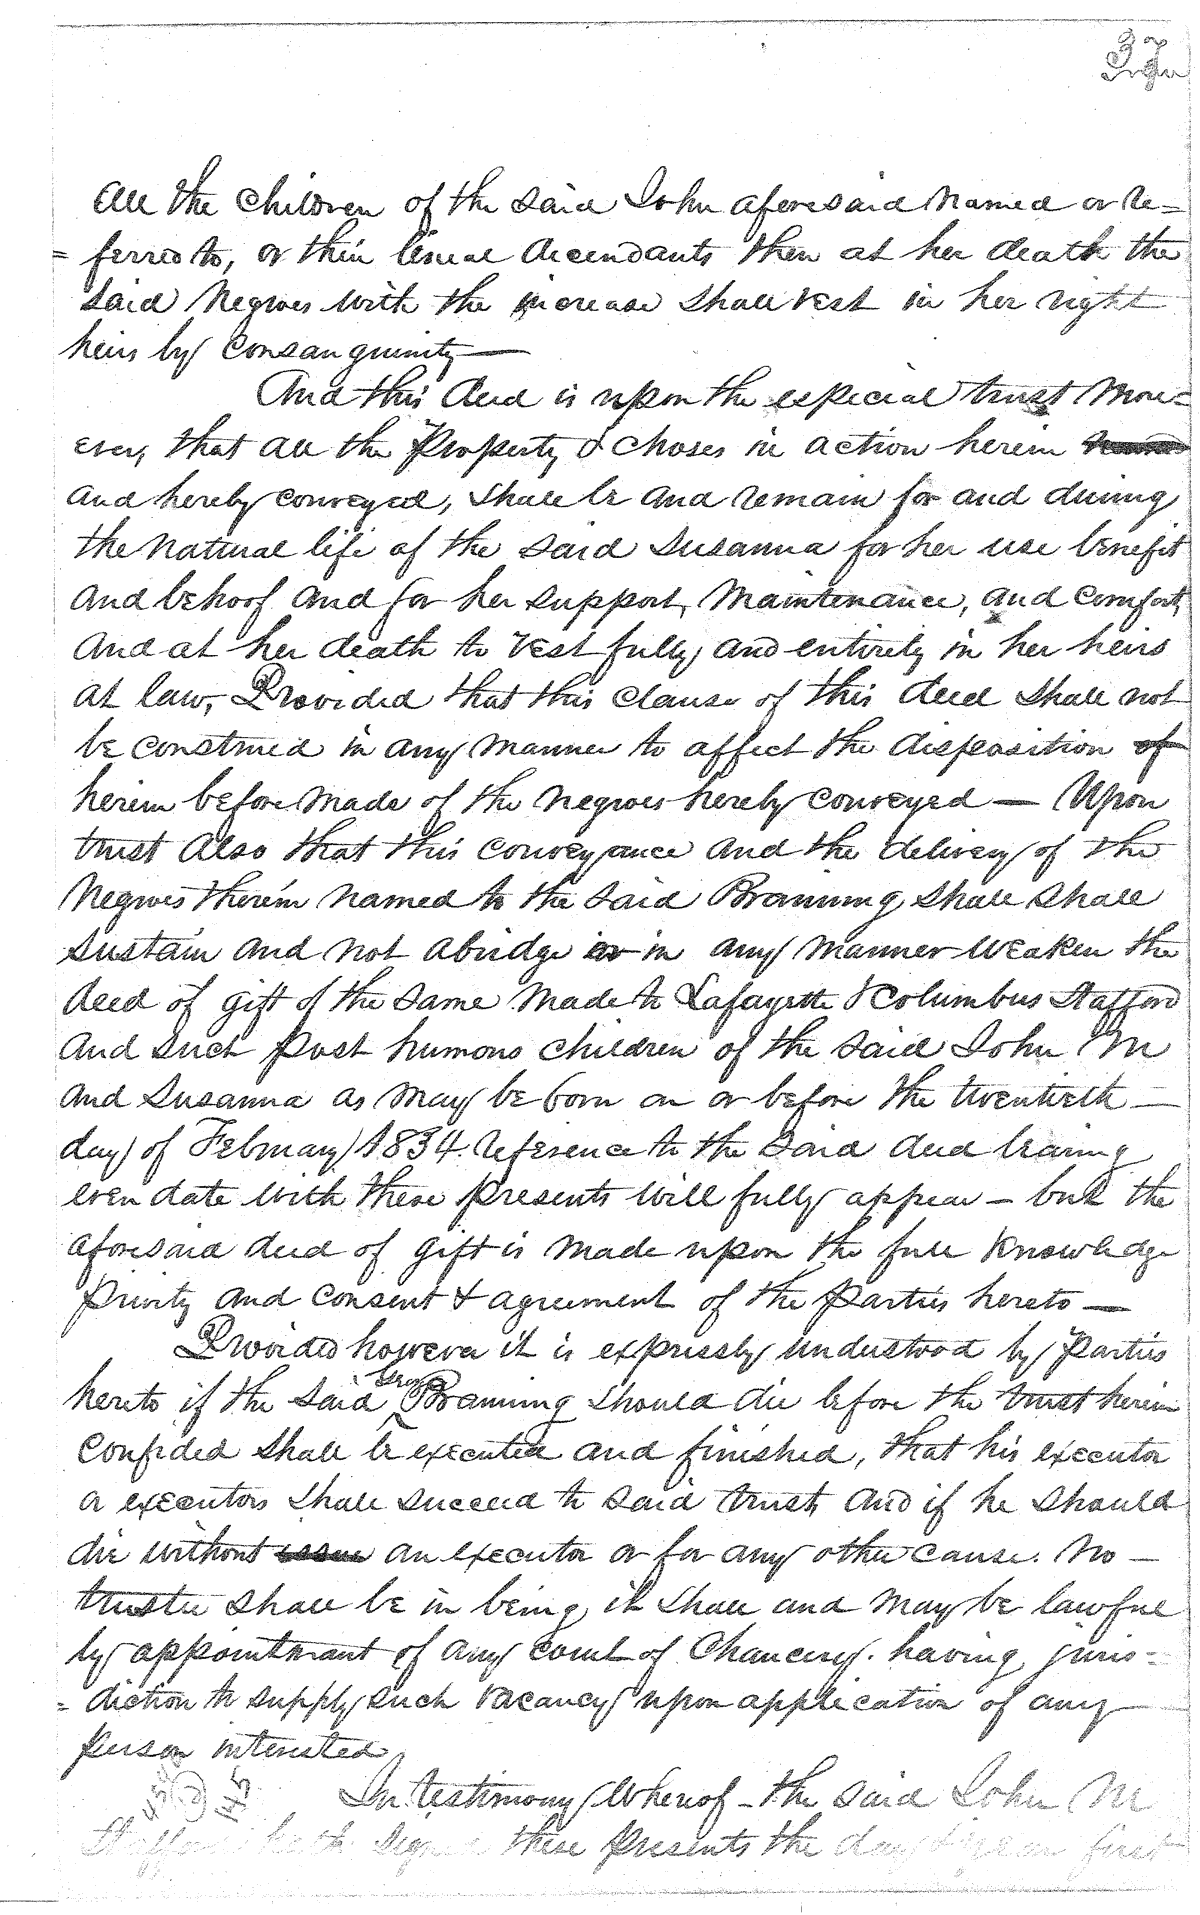 37
All the Children of the said John aforesaid named or re=
= ferred to, or their lineal decendants then at her death the
said Negroes with the increase shall vest in her right
heirs by Consanguinity —
And this deed is upon the especial trust More=
ever, that all the Property & choses in action herein
and hereby conveyed, shall be and remain for and during
the natural life of the said Susanna for her use benefit
and behoof and for her support, Maintenance, and Comfort,
And at her death to vest fully and entirely in her heirs
at law, Provided that this clause of this deed shall not
be construed in any manner to affect the disposition of
herein before made of the negroes hereby conveyed — Upon
trust also that this conveyance and the delivery of the
Negroes therein named to the said Branning shall shall
sustain and not abridge or in any manner weaken the
deed of gift of the same made to Lafayette & Columbus Stafford
and such post humous children of the said John M
and Susanna as may be born on or before the twentieth —
day of February 1834. reference to the said deed bearing
even date with these presents will fully appear — but the
aforesaid deed of gift is made upon the full knowledge
privity and consent & agreement of the parties hereto —
Provided however it is expressly understood by parties
hereto if the said Branning should die before the trust herein
confided shall be executed and finished, that his executor
or executors shall succeed to said trust, and if he should
die without issue an executor or for any other cause. No —
trustee shall be in being, it shall and may be lawful
by appointment of any court of Chancery. having juris=
= diction to supply such vacancy upon application of any
person interested
In testimony Whereof — the said John M
Stafford hath signed these presents the day & year first